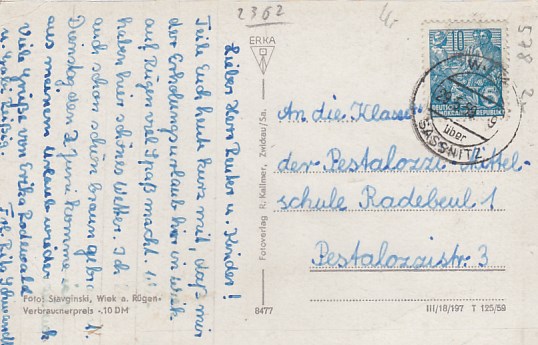 2362
578
Lieber Herr Reuter u. Kinder!
Teile Euch heute kurz mit, daß mir
der Erholungsurlaub hier in Wiek
auf Rügen viel Spaß macht. Wir
haben hier schönes Wetter. Ich
auch schon schön braun gebra
Dienstag den 2. Juni komme i
aus meinem Urlaub wieder
Viele Grüße von Erika Rodewald
ERKA
Fotoverlag R. Kallmer, Zwickau/Sa.
8477
10
DEUTSCHE DEMOKRATISCHE REPUBLIK
über
SASSNITZ
An die Klasse
der Pestalozzi Mittel-
schule Radebeul 1
Pestalozzistr. 3
Foto: Stavginski, Wiek a. Rügen
Verbraucherpreis -.10 DM
III/18/197 T 125/59